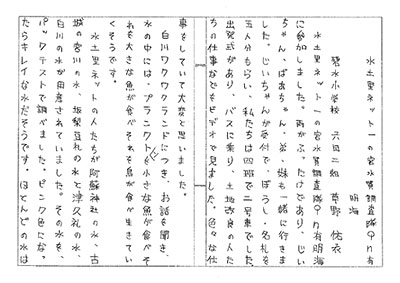 水土里ネット一の宮水質調査隊 in 有
明海
碧水小学校 六年二組 草野 佑衣
水土里ネット一の宮水質調査隊 in 有明海
に参加しました。雨がふったけどあり、じい
ちゃん、ばあちゃん、弟、妹も一緒に行きま
した。じいちゃんが受付で、ぼうし、名札を
五人分もらい、私たちは四班で二号車でした。
出発式があり、バスに乗り、土地改良の人た
ちの仕事などをビデオで見ました。色々な仕
事をしていて大変と思いました。
白川ワクワクランドにつき、お話を聞き、
水の中には、プランクトンを小さな魚が食べそ
れを大きな魚が食べそれを鳥が食べ生きてい
くそうです。
水土里ネットの人たちが阿蘇神社の水、古
城の宮川の水、坂梨豆札の水と津久礼の水、
白川の水が用意されていました。その水を、
パックテストで調べました。ピンク色にな
たらキレイな水だそうです。ほとんどの水は